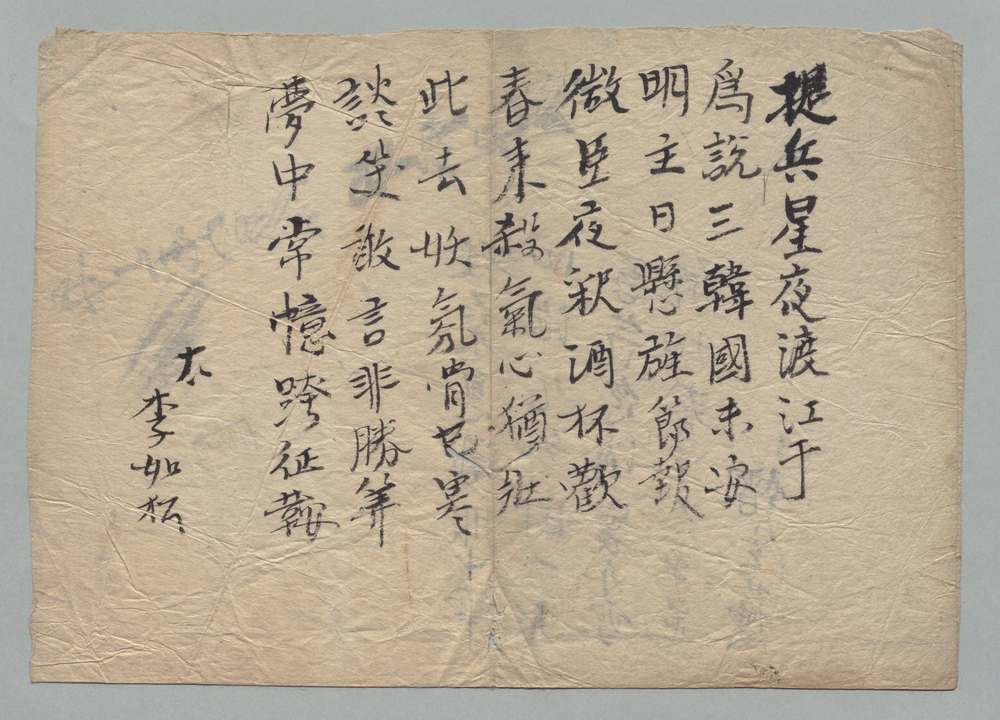 提兵星夜渡江于
爲說三韓國未安
明主日懸旌節報
微臣夜釈酒杯歡
春来殺氣心猶壯
此去妖氛骨已寒
談笑敢言非勝筭
夢中常憶跨征鞍
李如松